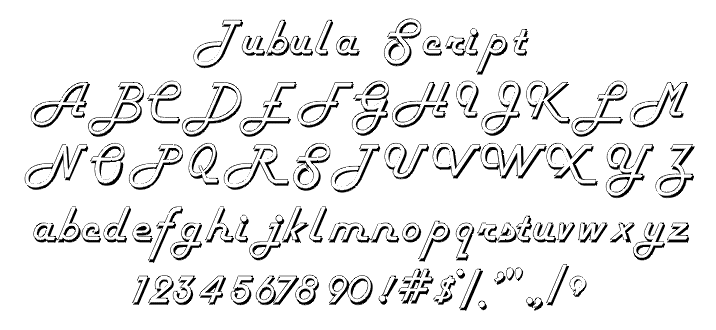 Tubula Script
ABCDEFGHIJKLM
NOPQRSTUVWXYZ
abcdefghijklmnopqrstuvwxyz
1234567890!#$%.'"",/?